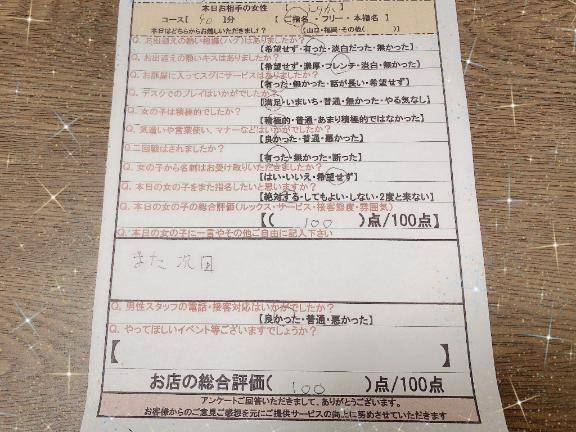 本日お相手の女性
コース【 90 】分 【 ご指名 ・フリー ・本指名】
本日はどちらからお越しいただきまし？ 【山口・福岡・その他( )】
Q. お出迎えの熱い抱擁(ハグ)はありましたか？
【希望せず・有った・淡白だった・無かった】
Q. お出迎えの熱いキスはありましたか？
【希望せず・濃厚・フレンチ・淡白・無かった】
Q. お部屋に入ってスグにサービスはありましたか？
【有った・無かった・話が長い・希望せず】
Q. デスクでのプレイはいかがでしたか？
【満足・いまいち・普通・無かった・やる気なし】
Q. 女の子は積極的でしたか？
【積極的・普通・あまり積極的ではなかった】
Q. 気遣いや言葉使い、マナーなどはいかがでしたか？
【良かった・普通・悪かった】
Q. 二回戦はされましたか？
【有った・無かった・断った】
Q. 女の子から名刺はお受け取りいただきましたか？
【はい・いいえ・希望せず】
Q. 本日の女の子をまた指名したいと思いますか？
【絶対する・してもよい・しない・2度と来ない】
Q. 本日の女の子の総合評価(ルックス・サービス・接客態度・雰囲気)
【( 100 )点/100点】
Q. 本日の女の子に一言やその他ご自由に記入下さい
また次回
Q. 男性スタッフの電話・接客対応はいかがでしたか？
【良かった・普通・悪かった】
Q. やってほしいイベント等ございますでしょうか？
【 】
お店の総合評価( 100 )点/100点
アンケートご回答いただきまして、ありがとうございます。
お客様からのご意見ご感想を元にご提供サービスの向上に努めさせていただきます